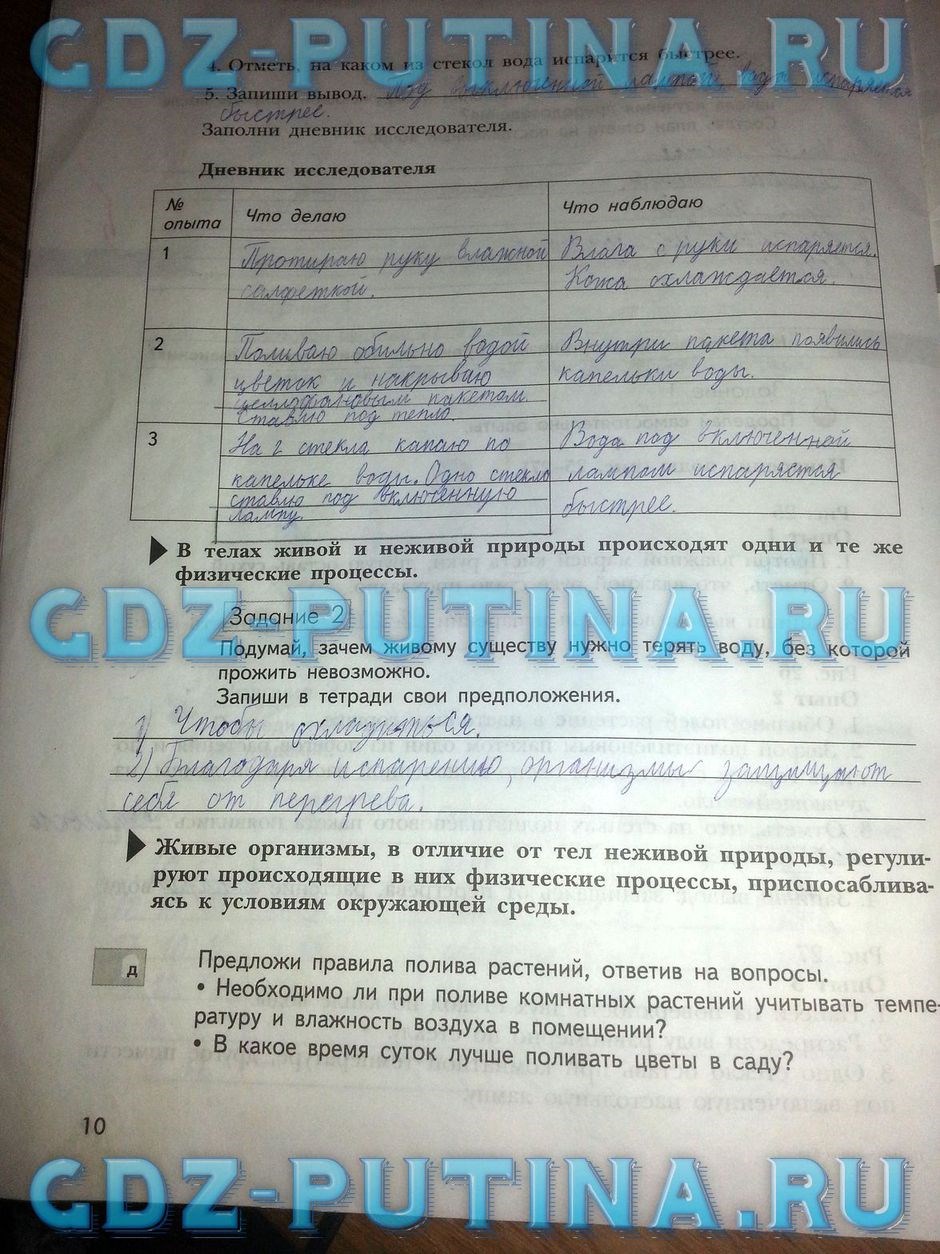 GDZ-PUTINA.RU
4. Отметь, на каком из стекол вода испарится быстрее.
5. Запиши вывод. Под включенной лампой вода испаряется
быстрее.
Заполни дневник исследователя.
Дневник исследователя
№ опыта Что делаю Что наблюдаю
1 Протираю руку влажной Влага с руки испаряется.
салфеткой. Кожа охлаждается.
2 Поливаю обильно водой Внутри пакета появились
цветок и накрываю капельки воды.
целлофановым пакетом
ставлю под тепло.
3 На 2 стекла капаю по Вода под включенной
капельке воды. Одно стекло лампой испаряется
ставлю под включенную быстрее.
лампу.
В телах живой и неживой природы происходят одни и те же
физические процессы.
GDZ-PUTINA.RU
Задание 2
Подумай, зачем живому существу нужно терять воду, без которой
прожить невозможно.
Запиши в тетради свои предположения.
1) Чтобы охладиться.
2) Благодаря испарению, организмы защищают
себя от перегрева.
Живые организмы, в отличие от тел неживой природы, регули-
руют происходящие в них физические процессы, приспосаблива-
ясь к условиям окружающей среды.
д
Предложи правила полива растений, ответив на вопросы.
• Необходимо ли при поливе комнатных растений учитывать темпе-
ратуру и влажность воздуха в помещении?
• В какое время суток лучше поливать цветы в саду?
10
GDZ-PUTINA.RU